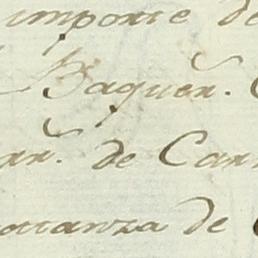 importe de
Baquer.
de Car
tanza de